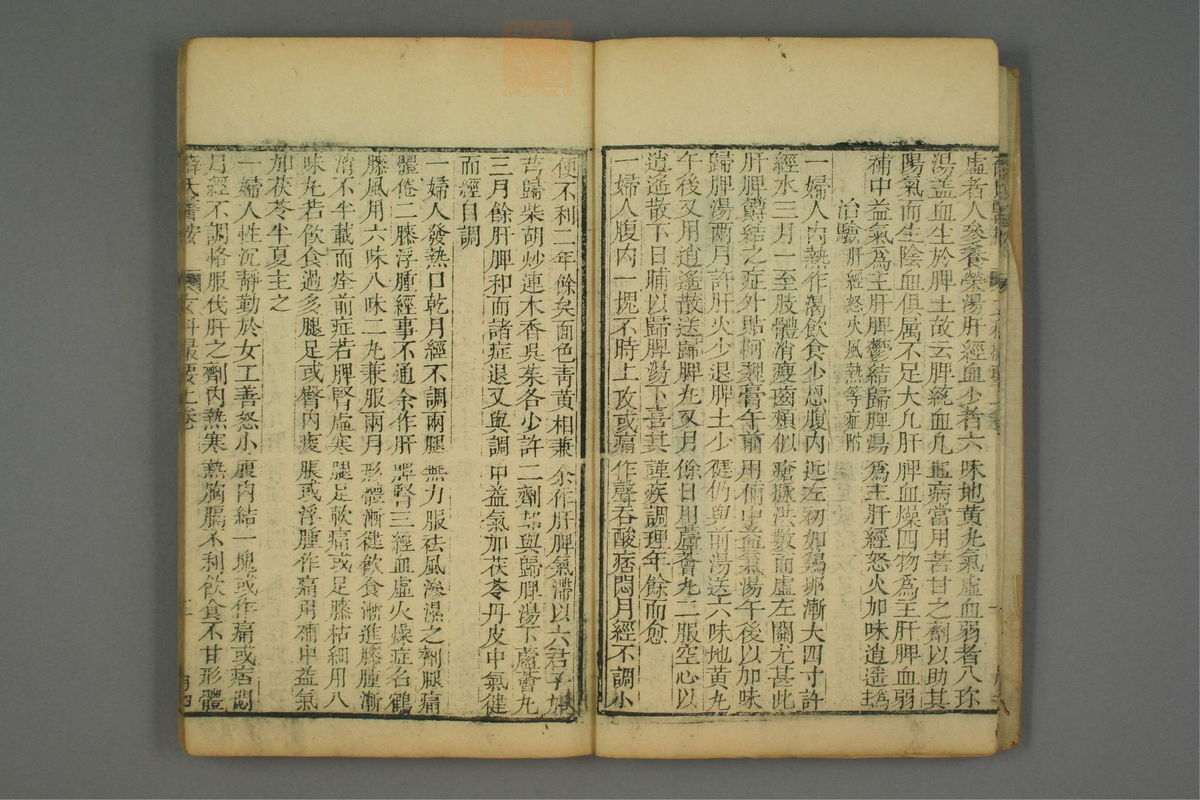 虛者人參養榮湯肝經血少者六味地黃丸氣虛血弱者八珍
湯蓋血生於脾土故云脾統血凡血病當用苦甘之劑以助其
陽氣而生陰血俱屬不足大凡肝脾血燥四物為主肝脾血弱
補中益氣為主肝脾鬱結歸脾湯為主肝經怒火加味逍遙為
治驗肝經怒火風熱等症附
一婦人內熱作渴飲食少思腹內近左初如鷄卵漸大四寸許
經水三月一至肢體消瘦齒頰似瘡脉洪數而虛左關尤甚此
肝脾鬱結之症外貼阿魏膏午前用補中益氣湯午後以加味
歸脾湯兩月許肝火少退脾土少健仍與前湯送六味地黃丸
午後又用逍遙散送歸脾丸又月餘日用蘆薈丸二服空心以
逍遙散下日晡以歸脾湯下喜其謹疾調理年餘而愈
一婦人腹內一塊不時上攻或痛作聲吞酸痞悶月經不調小
便不利二年餘矣面色靑黃相兼余作肝脾氣滯以六君子加
芎歸柴胡炒連木香吳茱各少許二劑却與歸脾湯下蘆薈丸
三月餘肝脾和而諸症退又與調中益氣加茯苓丹皮中氣健
而經自調
一婦人發熱口乾月經不調兩腿無力服祛風滲濕之劑腿痛
體倦二膝浮腫經事不通余作肝脾腎三經血虛火燥症名鶴
膝風用六味八味二丸兼服兩月形體漸健飲食漸進膝腫漸
消不半載而痊前症若脾腎虛寒腿足軟痛或足膝枯細用八
味丸若飲食過多腿足或臀內痠脹或浮腫作痛用補中益氣
加茯苓半夏主之
一婦人性沉靜勤於女工善怒小腹內結一塊或作痛或痞悶
月經不調恪服伐肝之劑內熱寒熱胸膈不利飲食不甘形體
薛氏醫按 女科撮要上卷